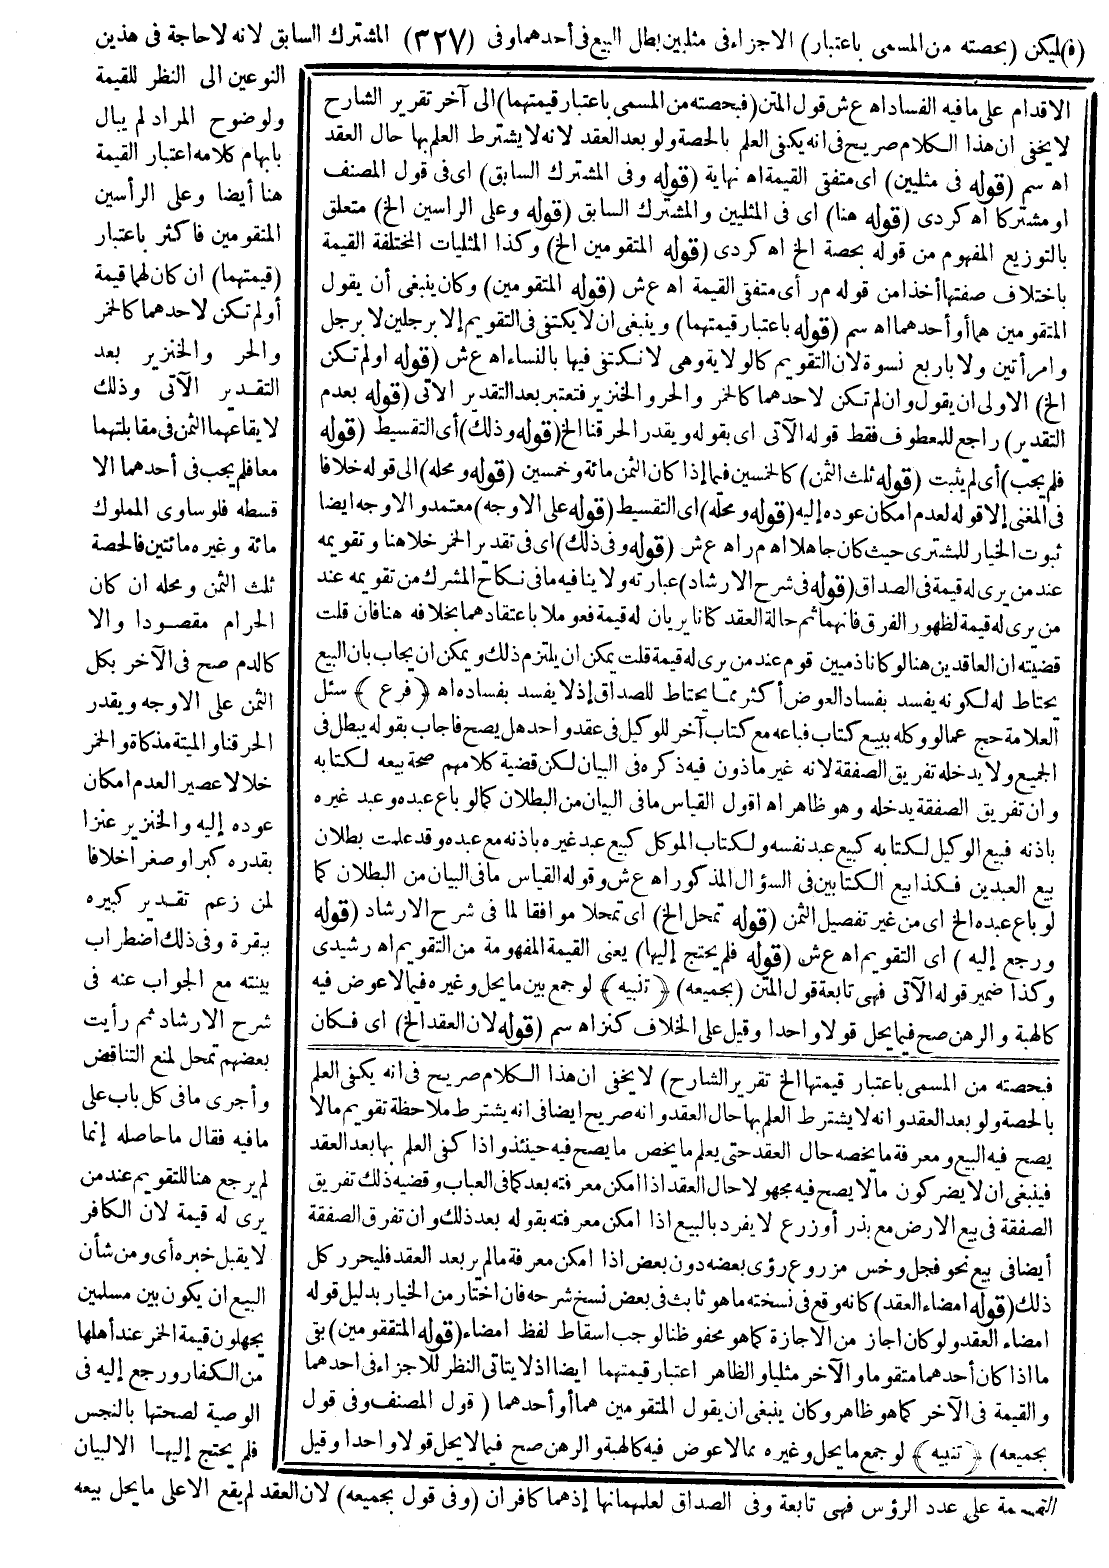 (ف)ليكن (بحصته من المسمى باعتبار) الاجزاء فى مثليين بطل البيع فى أحدهما وفى (٣٢٧) المشترك السابق لانه لا حاجة فى هذين
النوعين الى النظر للقيمة
ولوضوح المراد لم يبال
بابهام كلامه اعتبار القيمة
هنا أيضا وعلى الرأسين
المتقومين فاكثر باعتبار
(قيمتهما) ان كان لهما قيمة
أولم تكن لاحدهما كالخمر
والحر والخنزير بعد
التقدير الآتى وذلك
لايقاعهما الثمن فى مقابلتهما
معا فلم يجب فى أحدهما الا
قسطه فلو ساوى المملوك
مائة وغيره مائتين فالحصة
ثلث الثمن ومحله ان كان
الحرام مقصودا والا
كالدم صح فى الآخر بكل
الثمن على الاوجه ويقدر
الحر قنا والميتة مذكاة والخمر
خلا لا عصير العدم امكان
عوده إليه والخنزير عنزا
بقدره كبرا وصغرا خلافا
لمن زعم تقدير كبيره
ببقرة وفى ذلك اضطراب
بينته مع الجواب عنه فى
شرح الارشاد ثم رأيت
بعضهم تمحل لمنع التناقض
وأجرى ما فى كل باب على
ما فيه فقال ما حاصله إنما
لم يرجع هنا للتقويم عند من
يرى له قيمة لان الكافر
لا يقبل خبره أى ومن شأن
البيع ان يكون بين مسلمين
يجهلون قيمة الخمر عند أهلها
من الكفار ورجع إليه فى
الوصية لصحتها بالنجس
فلم يحتج إليها الا لبيان
القسمة على عدد الرؤس فهى تابعة وفى الصداق لعلمهما بها إذ هما كافران (وفى قول بجميعه) لان العقد لم يقع الا على ما يحل بيعه
الاقدام على ما فيه الفساد اه ع ش قول المتن (فبحصته من المسمى باعتبار قيمتهما) الى آخر تقرير الشارح
لا يخفى ان هذا الكلام صريح فى انه يكفى العلم بالحصة ولو بعد العقد لانه لا يشترط العلم بها حال العقد
اه سم (قوله فى مثليين) اى متفقى القيمة اه نهاية (قوله وفى المشترك السابق) اى فى قول المصنف
او مشتركا اه كردى (قوله هنا) اى فى المثليين والمشترك السابق (قوله وعلى الراسين الخ) متعلق
بالتوزيع المفهوم من قوله بحصة الخ اه كردى (قوله المتقومين الخ) وكذا المثليات المختلفة القيمة
باختلاف صفتها أخذا من قوله م ر أى متفقى القيمة اه ع ش (قوله المتقومين) وكان ينبغى أن يقول
المتقومين هما أو أحدهما اه سم (قوله باعتبار قيمتهما) وينبغى ان لا يكتفى فى التقويم إلا برجلين لا برجل
وامرأتين ولا باربع نسوة لان التقويم كالولاية وهى لا نكتفى فيها بالنساء اه ع ش (قوله اولم تكن
الخ) الاولى ان يقول وان لم تكن لاحدهما كالخمر والحر والخنزير فتعتبر بعد التقدير الاتى (قوله بعدم
التقدير) راجع للمعطوف فقط قوله الآتى اى بقوله ويقدر الحر قنا الخ (قوله وذلك) أى التقسيط (قوله
فلم يجب) أى لم يثبت (قوله ثلث الثمن) كالخمسين فيما إذا كان الثمن مائة وخمسين (قوله ومحله) الى قوله خلافا
فى المغنى إلا قوله لعدم امكان عوده إليه (قوله ومحله) اى التقسيط (قوله على الاوجه) معتمد والاوجه ايضا
ثبوت الخيار للمشترى حيث كان جاهلا اه م ر اه ع ش (قوله وفى ذلك) اى فى تقدير الخمر خلا هنا وتقويمه
عند من يرى له قيمة فى الصداق (قوله فى شرح الارشاد) عبارته ولا ينافيه ما فى نكاح المشرك من تقويمه عند
من يرى له قيمة لظهور الفرق فانهما ثم حالة العقد كانا يريان له قيمة فعوملا باعتقادهما بخلافه هنا فان قلت
قضيته ان العاقدين هنا لو كانا ذميين قوم عند من يرى له قيمة قلت يمكن ان يلتزم ذلك ويمكن ان يجاب بان البيع
يحتاط له لكونه يفسد بفساد العوض أكثر مما يحتاط للصداق إذ لا يفسد بفساده اه ﴿فرع﴾ سئل
العلامة حج عما لو وكله ببيع كتاب فباعه مع كتاب آخر للوكيل فى عقد واحد هل يصح فاجاب بقوله يبطل فى
الجميع ولا يدخله تفريق الصفقة لانه غير ماذون فيه ذكره فى البيان لكن قضية كلامهم صحة بيعه لكتابه
وان تفريق الصفقة يدخله وهو ظاهر اه اقول القياس ما فى البيان من البطلان كما لو باع عبده وعبد غيره
باذنه فبيع الوكيل لكتابه كبيع عبد نفسه ولكتاب الموكل كبيع عبد غيره باذنه مع عبده وقد علمت بطلان
بيع العبدين فكذا بيع الكتابين فى السؤال المذكور اه ع ش وقوله القياس ما فى البيان من البطلان كما
لو باع عبده الخ اى من غير تفصيل الثمن (قوله تمحل الخ) اى تمحلا موافقا لما فى شرح الارشاد (قوله
ورجع إليه) اى التقويم اه ع ش (قوله فلم يحتج إليها) يعنى القيمة المفهومة من التقويم اه رشيدى
وكذا ضمير قوله الآتى فهى تابعة قول المتن (بجميعه) ﴿تنبيه﴾ لو جمع بين ما يحل وغيره فيما لا عوض فيه
كالهبة والرهن صح فيما يحل قولا واحدا وقيل على الخلاف كنز اه سم (قوله لان العقد الخ) اى فكان
فبحصته من المسمى باعتبار قيمتها الخ تقرير الشارح) لا يخفى ان هذا الكلام صريح فى انه يكفى العلم
بالحصة ولو بعد العقد وانه لا يشترط العلم بها حال العقد وانه صريح ايضا فى انه يشترط ملاحظة تقويم ما لا
يصح فيه البيع ومعرفة ما يخصه حال العقد حتى يعلم ما يخص ما يصح فيه حينئذ واذا كفى العلم بها بعد العقد
فينبغى ان لا يضر كون ما لا يصح فيه مجهولا حال العقد اذا امكن معرفته بعد كما فى العباب وقضيه ذلك تفريق
الصفقة فى بيع الارض مع بذر أو زرع لا يفرد بالبيع اذا امكن معرفته بقوله بعد ذلك وان تفرق الصفقة
أيضا فى بيع نحو فجل وخس مزروع رؤى بعضه دون بعض اذا امكن معرفة ما لم ير بعد العقد فليحرر كل
ذلك (قوله امضاء العقد) كانه وقع فى نسخته ما هو ثابت فى بعض نسخ شرحه فان اختار من الخيار بدليل قوله
امضاء العقد ولو كان اجاز من الاجازة كما هو محفوظنا لوجب اسقاط لفظ امضاء (قوله المتققومين) بقى
ما اذا كان أحدهما متقوما والآخر مثليا والظاهر اعتبار قيمتهما ايضا اذ لا يتاتى النظر للاجزاء فى احدهما
والقيمة فى الآخر كما هو ظاهر وكان ينبغى ان يقول المتقومين هما أو أحدهما (قول المصنف وفى قول
بجميعه) ﴿تنبيه﴾ لو جمع ما يحل وغيره بما لا عوض فيه كالهبة والرهن صح فيما لا يحل قولا واحدا وقيل